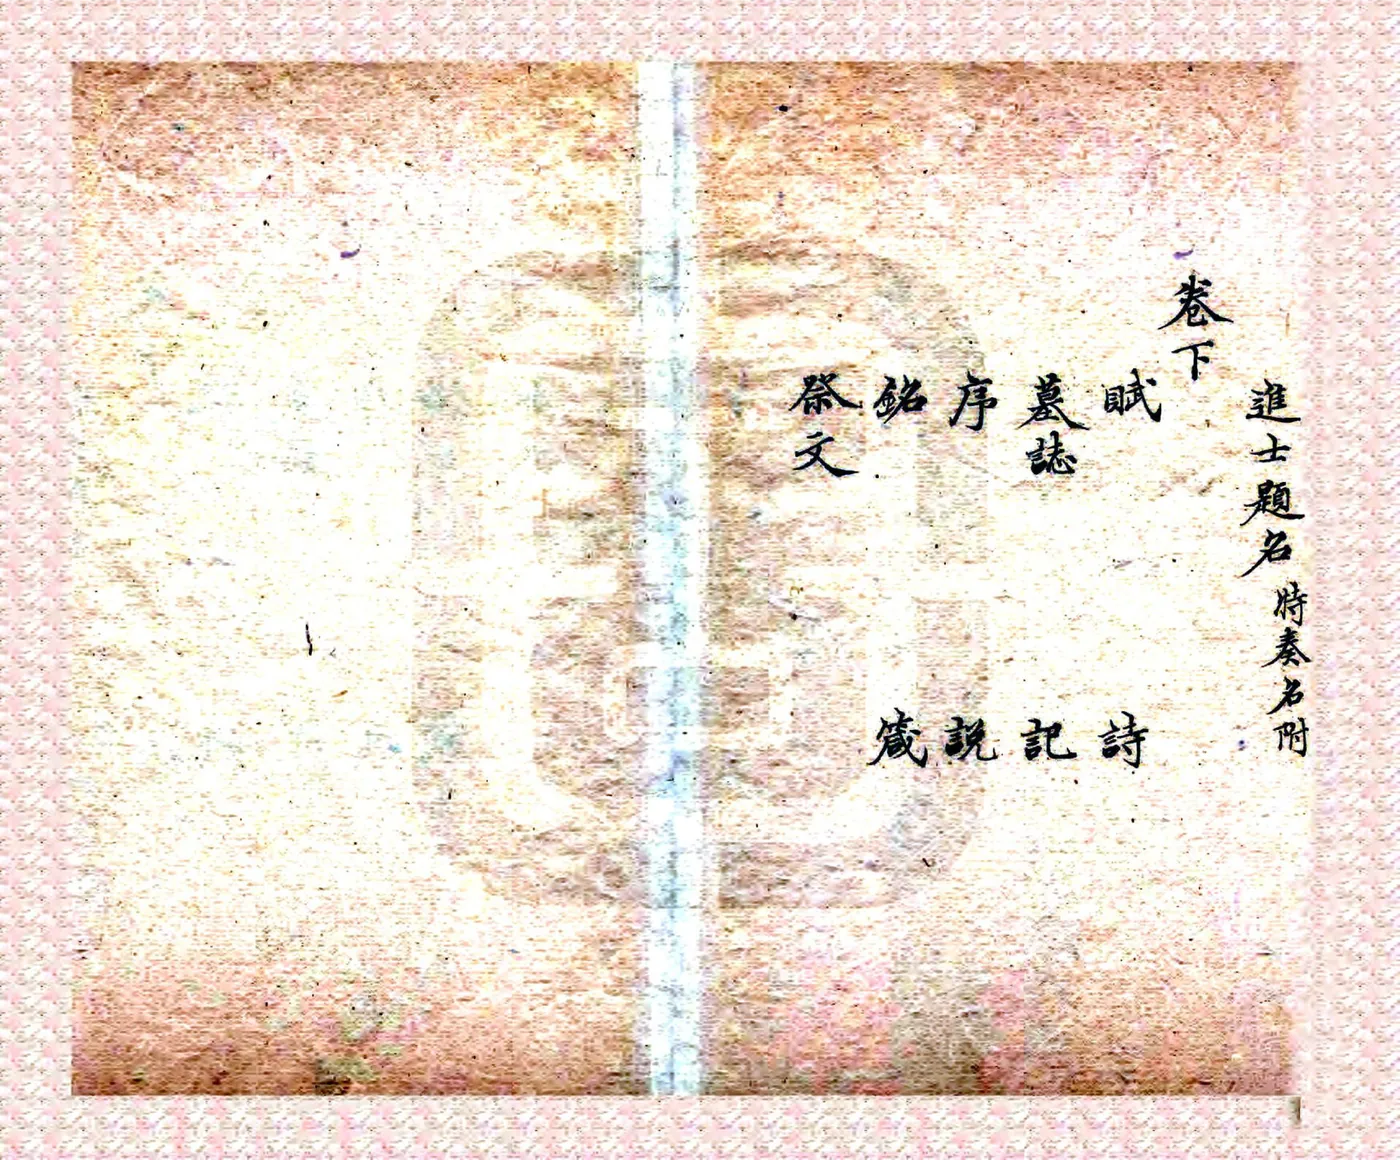 進士題名 特奏名附
卷下
賦 詩
墓誌 記
序 説
銘 箴
祭文